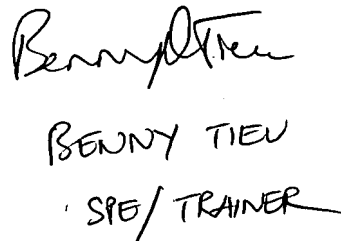 Benny Tieu
BENNY TIEU
SPE/TRAINER